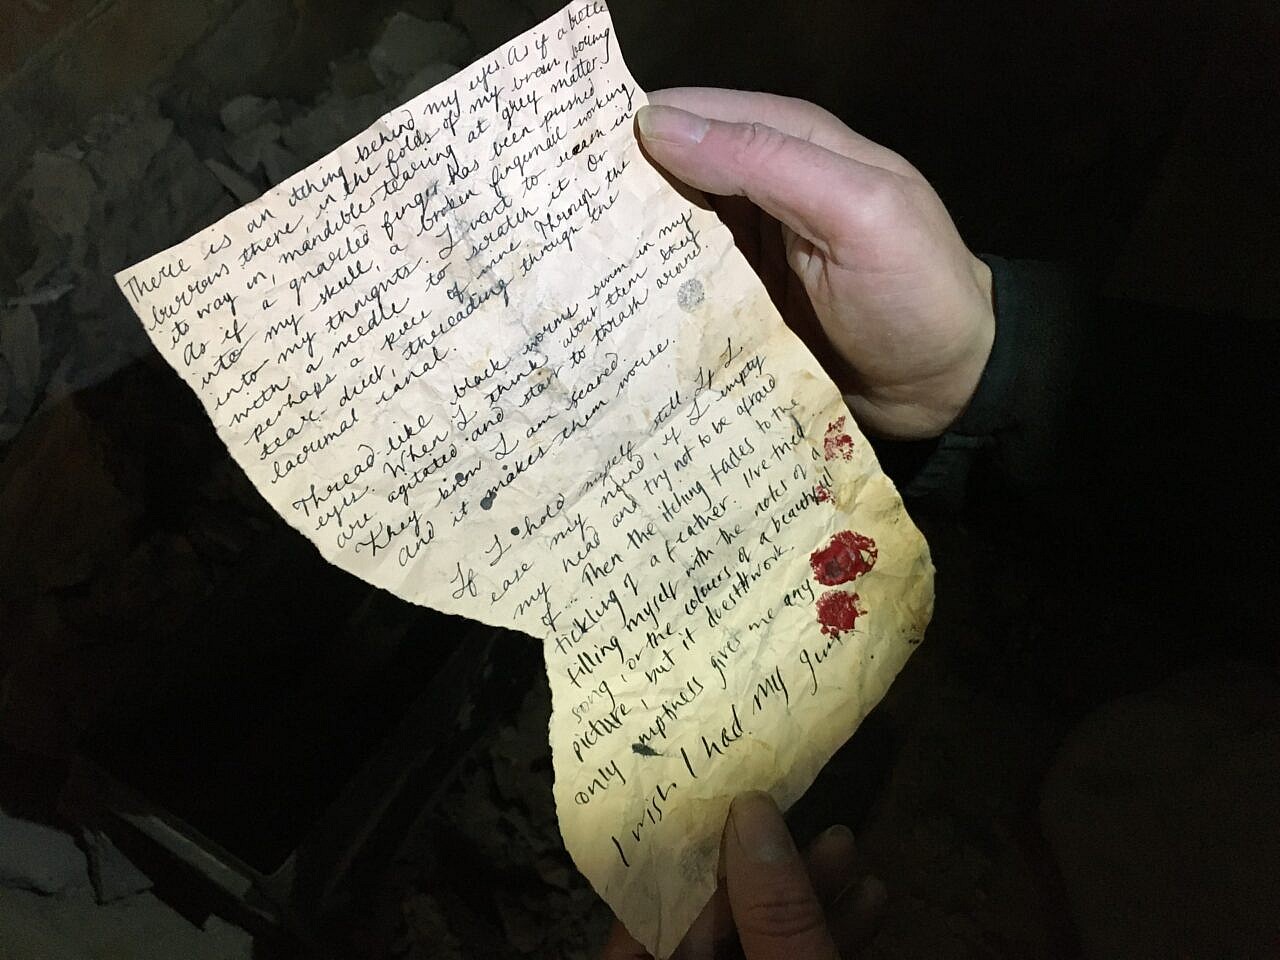 There is an itching behind my eyes. As if a beetle
burrows there, in the folds of my brain, boring
its way in, mandibles tearing at grey matter.
As if a gnarled finger has been pushed
into my skull, a broken fingernail working
into my thoughts. I want to ream in
with a needle to scratch it. Or
perhaps a piece of mine Through the
tear duct, threading through the
lacrimal canal.
Thread-like black worms swim in my
eyes. When I think about them they
are agitated and start to thrash around.
They know I am scared.
And it makes them worse.
If I hold myself still. If I
ease my mind, if I empty
my head and try not to be afraid
of... Then the itching fades to the
tickling of a feather. I've tried
filling myself with the notes of a
song, or the colours of a beautiful
picture, but it doesn't work.
only emptiness gives me any
I wish I had my